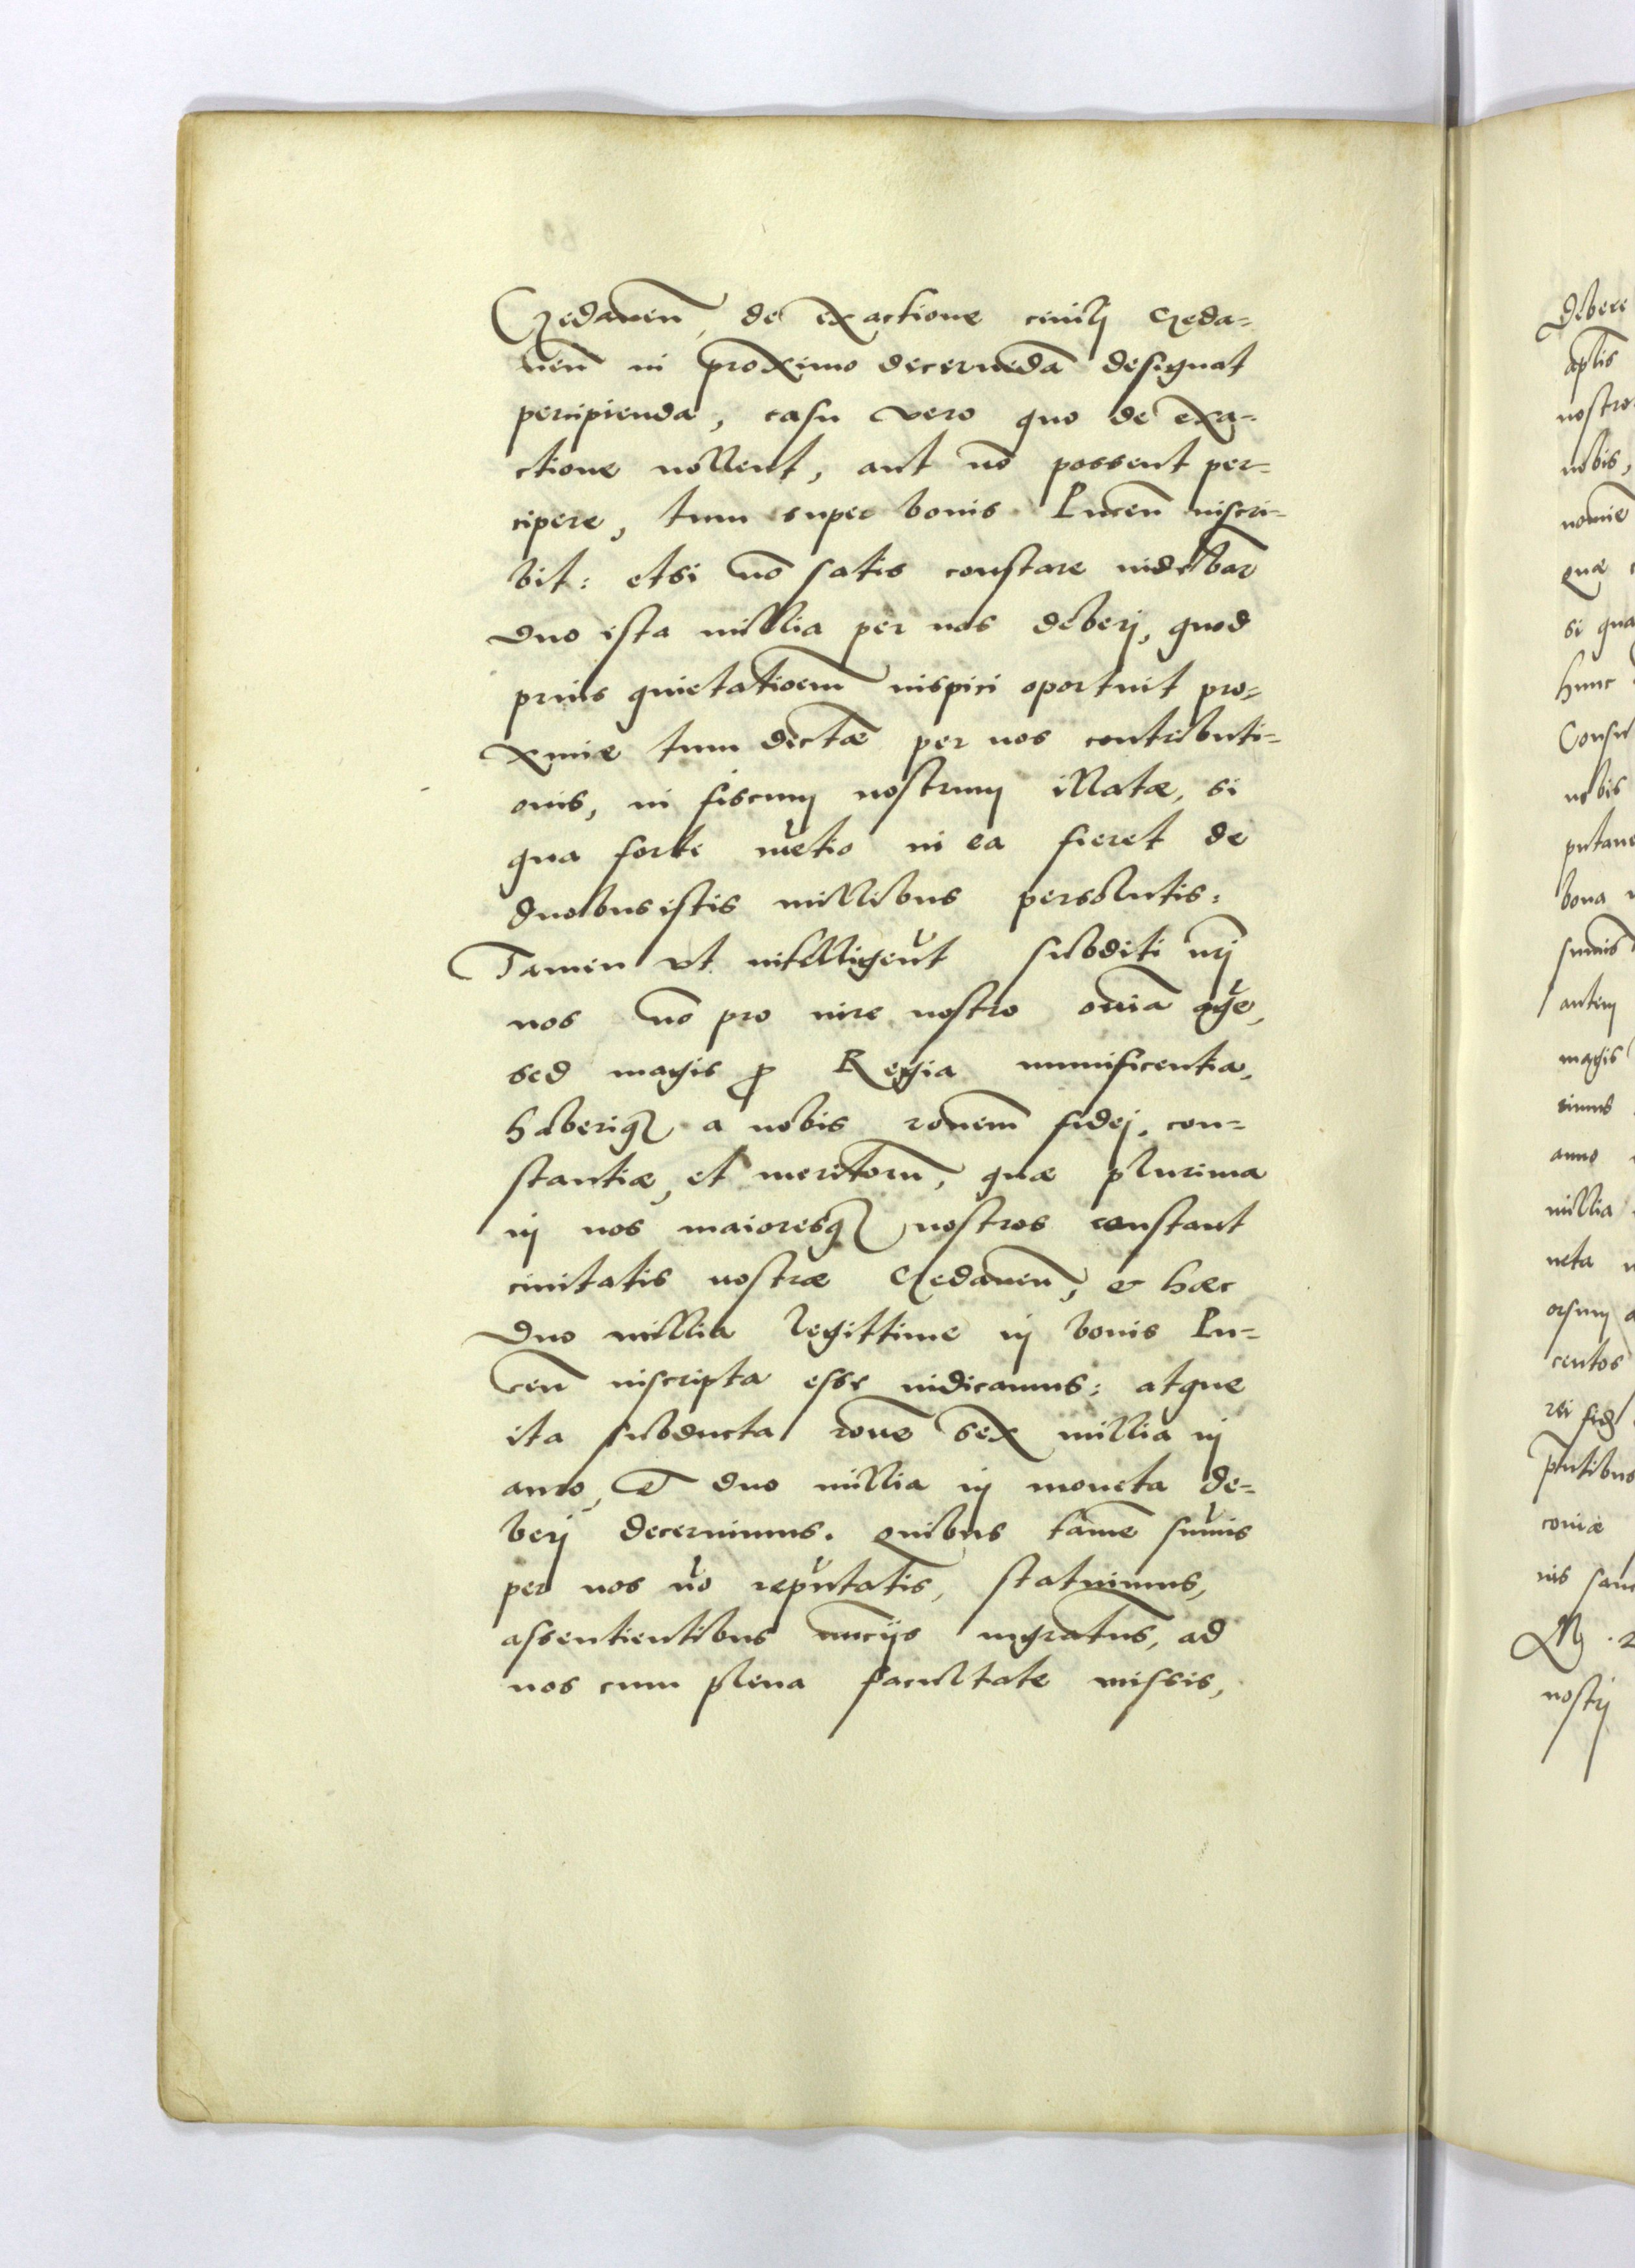 Gedanen̄, de exactione ciuilj Geda=
nen̄ in proximo decerneda designat
percipienda, casu vero quo de exa=
ctione nollent, aut nō possent per=
cipere, tum super bonis Pucen̄ inscri=
bit: etsi nō satis constare uidebat̄
duo ista millia per nos deberj, quod
prius quietatioem̄ inspici oportuit pro=
ximæ tum dictæ per nos contributi=
onis, in fiscum nostrum illatæ, si
qua forte mētio in ea fieret de
duobus istis millibus persolutis:
Tamen vt intelligeūt subditi nr̄j
nos nō pro iure nostro om̄ia agē,
sed magis ꝓ Regia munificentia,
haberiqꝫ a nobis ron̄em fidej, con=
stantiæ, et meritorū, quæ plurima
in nos maioresqꝫ nostros constant
ciuitatis nostræ Gedanen̄, & hæc
duo millia legittime in bonis Pu=
cen̄ inscripta esse iudicamus: atque
ita subducta ron̄e sex millia in
auro, et duo millia in moneta de=
berj decernimus. quibus tamē sum̄is
per nos ūo reputatis, statuimus,
assentientibus nuncijs ingratus, ad
nos cum plena facultate missis,
Debere
aplīs
nostro
nobis,
nomīe
quæ
si qua
hunc
Consu
nobis
putaue
bona
sum̄is
autem
magis
simus
anno
millia
neta
orsum
centos
rei
coniæ
nis
M. 2
nostrj